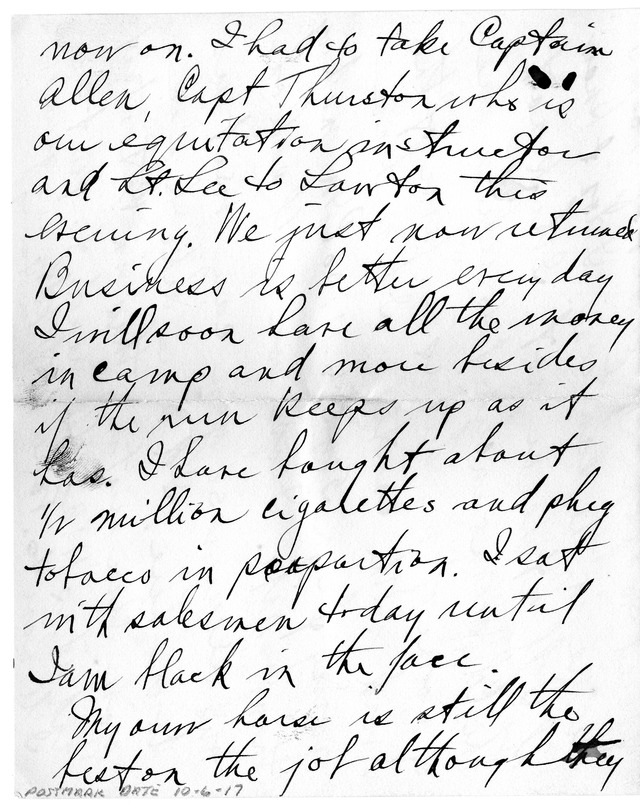 now on. I had to take Captain
Allen, Capt Thurston who is
our equitation instructor
and Lt. Lee to Lawton this
evening. We just now returned
Business is better every day
I will soon have all the money
in camp and more besides
if the run keeps up as it
has. I have bought about
1/2 million cigarettes and plug
tobacco in proportion. I sat
with salesmen today until
I am black in the face.
My own horse is still the
best on the job although they
POSTMARK DATE 10-6-17